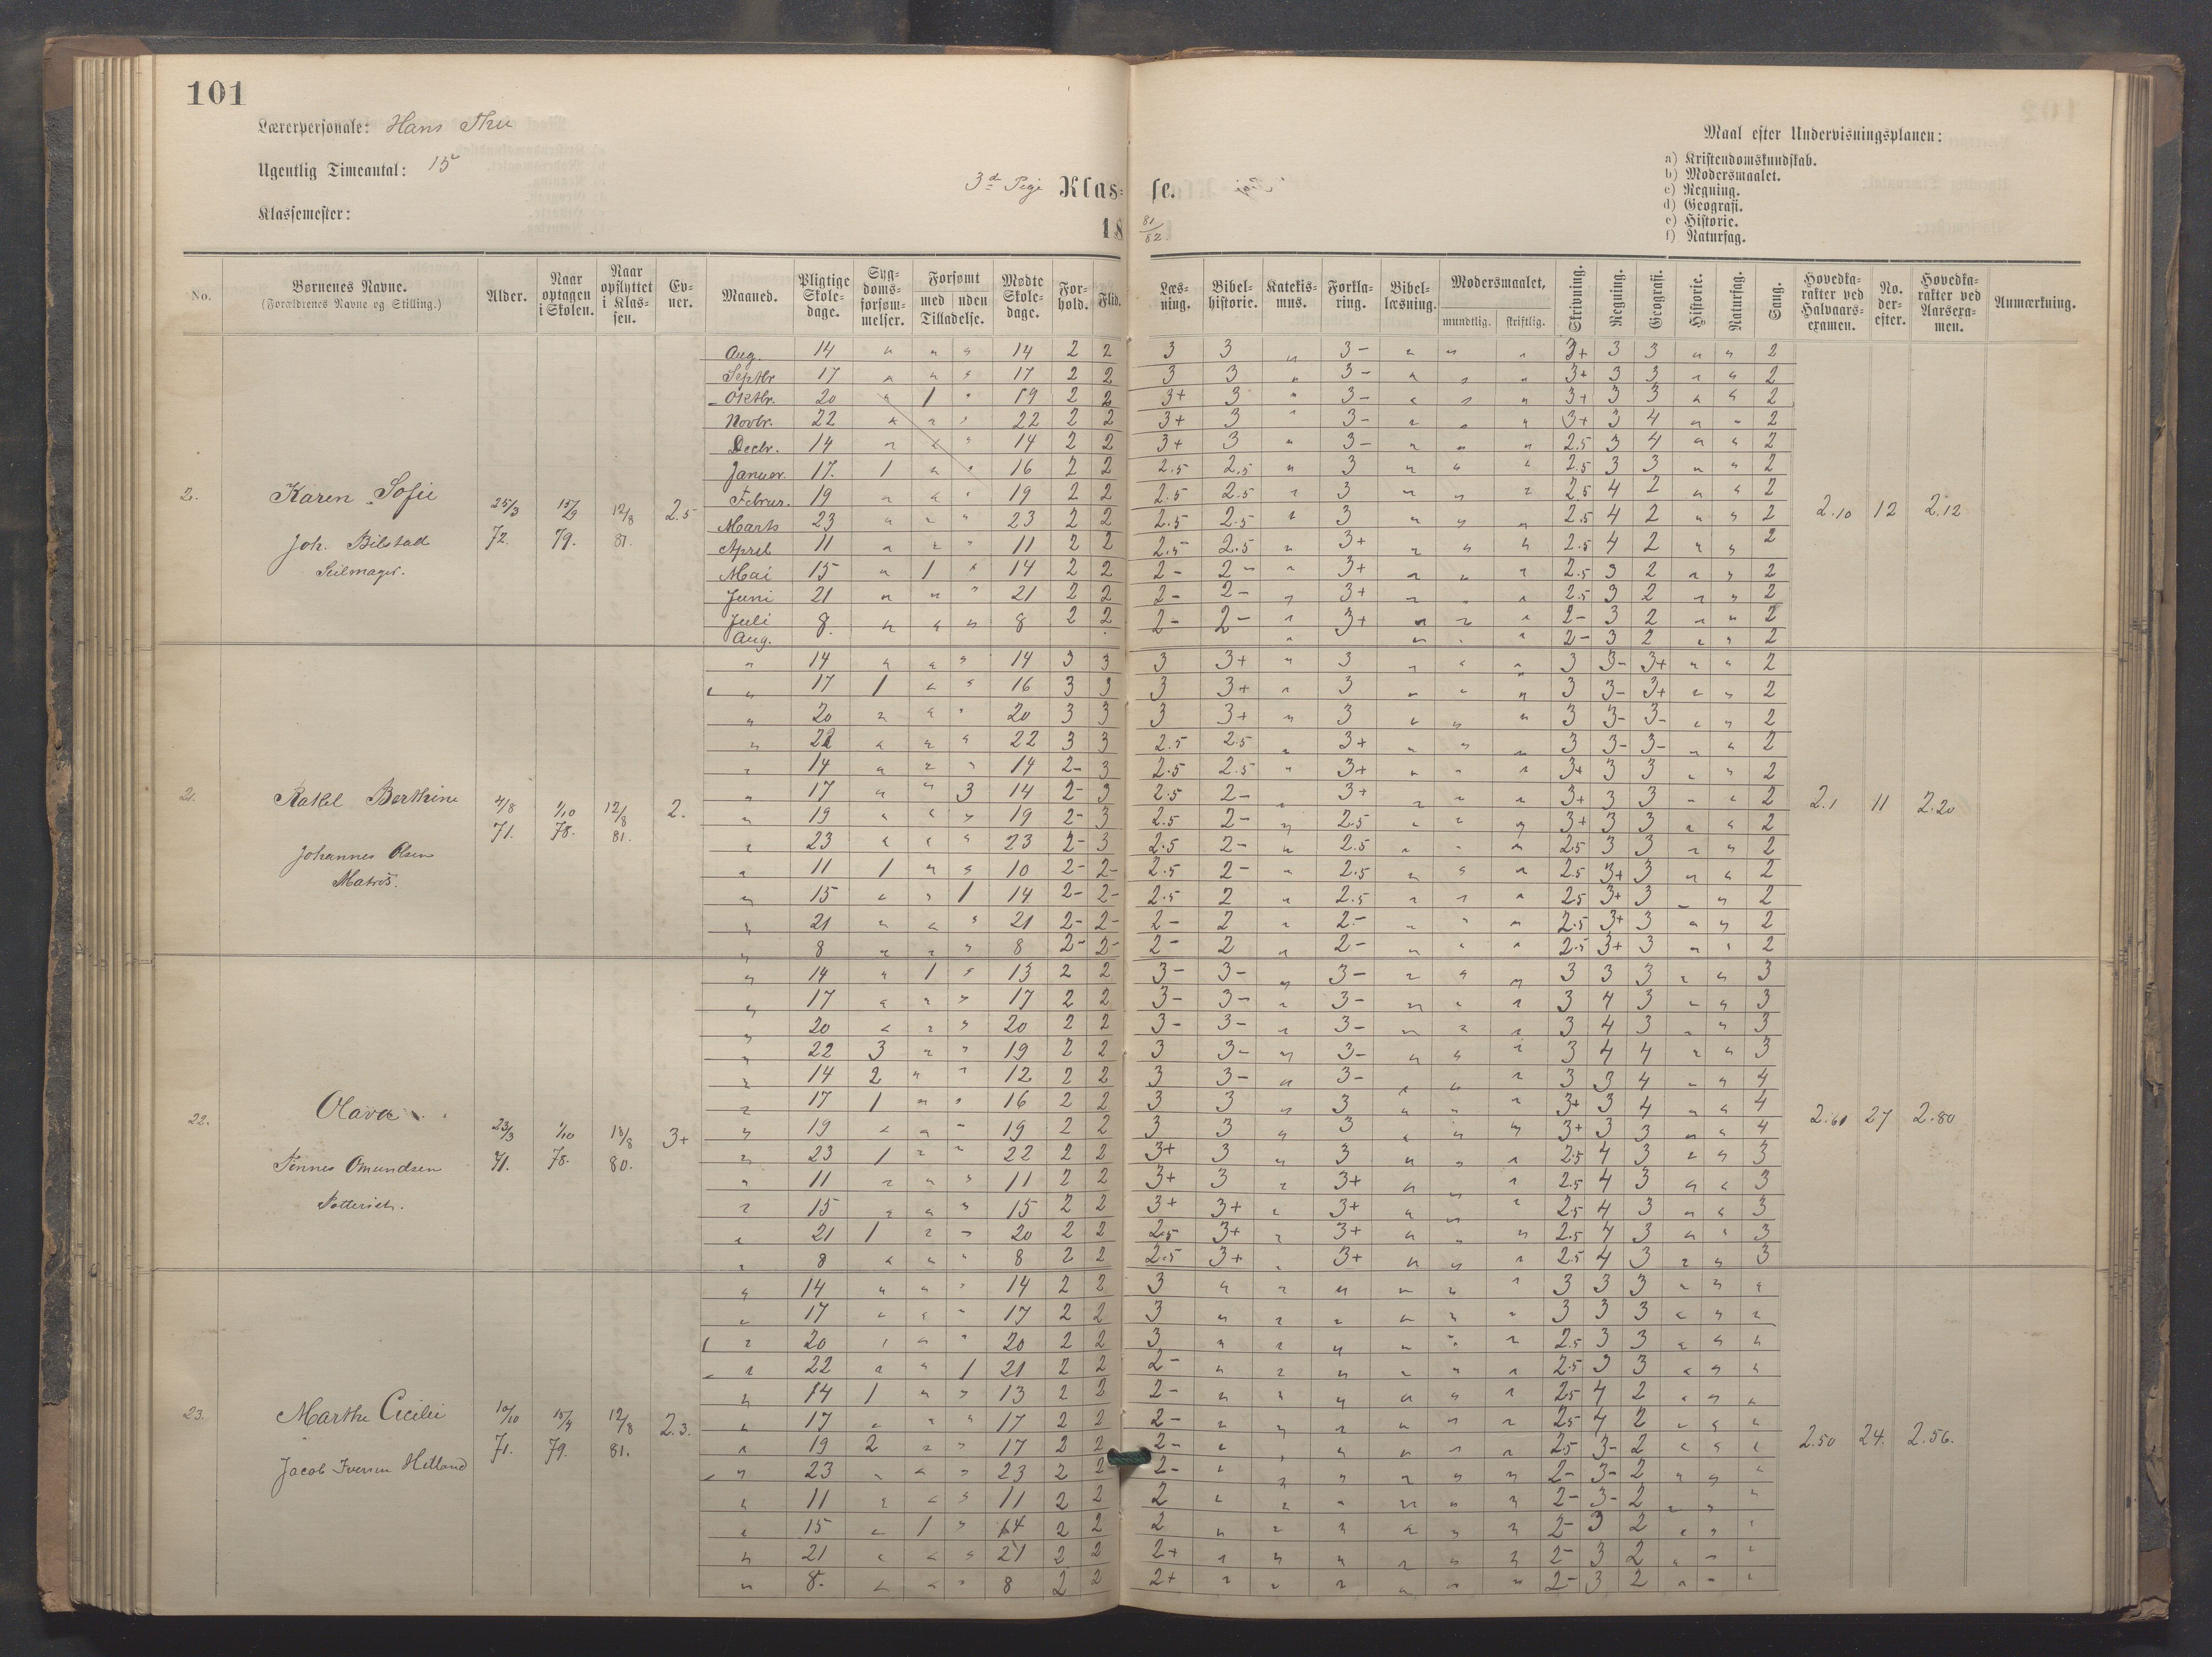 101
Lærerpersonale: Hans Thu
Ugentlig Timeantal: 15
Klassemester:
3d Pige Klasse.
18 81/82
Maal efter Undervisningsplanen:
a) Kristendomskundskab.
b) Modersmaalet.
c) Regning.
d) Geografi.
e) Historie.
f) Naturfag.
No. Børnenes Navne. (Forældrenes Navne og Stilling.) Alder. Naar optagen i Skolen. Naar opflyttet i Klassen. Evner. Maaned. Pligtige Skoledage. Sygdomsforsømmelser. Forsømt med uden Tilladelse. Mødte Skoledage. Forhold. Flid. Læsning. Bibelhistorie. Katekismus. Forklaring. Bibellæsning. Modersmaalet, mundtlig. skriftlig. Skrivning. Regning. Geografi. Historie. Naturfag. Sang. Hovedkarakter ved Halvaarsexamen. No. derefter. Hovedkarakter ved Aarsexamen. Anmærkning.
Aug. 14 " " " 14 2 2 3 3 " 3- " " " 3+ 3 3 " " 2
Septbr 17 " " " 17 2 2 3 3 " 3- " " " 3+ 3 3 " " 2
Oktbr. 20 " 1 " 19 2 2 3+ 3 " 3- " " " 3+ 3 3 " " 2
Novbr. 22 " " " 22 2 2 3+ 3 " 3- " " " 3+ 3 4 " " 2
Decbr. 14 " " " 14 2 2 3+ 3 " 3- " " " 2.5 3 4 " " 2
Januar. 17. 1 " " 16 2 2 2.5 2.5 " 3 " " " 2.5 3 3 " " 2
2. Karen Sofie 25/3 15/9 12/8 2.5 Februar. 19 " " " 19 2 2 2.5 2.5 " 3 " " " 2.5 4 2 " " 2 2.10 12 2.12
Marts 23 " " " 23 2 2 2.5 2.5 " 3 " " " 2.5 4 2 " " 2
Joh. Bilstad 72. 79. 81. April 11 " " " 11 2 2 2.5 2.5 " 3+ " " " 2.5 4 2 " " 2
Seilmager. Mai 15 " 1 " 14 2 2 2- 2- " 3+ " " " 2.5 3 2 " " 2
Juni 21 " " " 21 2 2 2- 2- " 3+ " " " 2.5 3 2 " " 2
Juli 8. " " " 8 2 2 2- 2- " 3+ " " " 2- 3 2 " " 2
Aug. " " " " 2- 3 2 " " 2
" 14 " " " 14 3 3 3 3+ " 3 " " " 3 3- 3+ " " 2
" 17 1 " " 16 3 3 3 3+ " 3 " " " 3 3- 3+ " " 2
" 20 " " " 20 3 3 3 3+ " 3 " " " 3 3- 3- " " 2
" 22 " " " 22 3 3 2.5 2.5 " 3+ " " " 3 3- 3- " " 2
" 14 " " " 14 2- 3 2.5 2.5 " 3+ " " " 3+ 3 3 " " 2
2. Rakel Berthine 4/8 1/10 12/8 2. " 17 " " 3 14 2- 3 2.5 2- " 3+ " " " 3+ 3 3 " " 2 2.1 11 2.20
71. 78. 81. " 19 " " " 19 2- 3 2.5 2- " 2.5 " " " 3+ 3 3 " " 2
Johannes Olsen " 23 " " " 23 2- 3 2.5 2- " 2.5 " " " 2.5 3 3 " " 2
Matros. " 11 1 " " 10 2- 2- 2.5 2- " 2.5 " " " 2.5 3+ 3 " " 2
" 15 " " 1 14 2- 2- 2.5 2 " 2.5 " " " 2.5 3+ 3 " " 2
" 21 " " " 21 2- 2- 2- 2 " 2- " " " 2.5 3+ 3 " " 2
" 8 " " " 8 2- 2- 2- 2 " 2- " " " 2.5 3+ 3 " " 2
" 14 " 1 " 13 2 2 3- 3- " 3- " " " 3 3 3 " " 3
" 17 " " " 17 2 2 3- 3- " 3- " " " 3 4 3 " " 3
" 20 " " " 20 2 2 3- 3- " 3- " " " 3 4 3 " " 3
" 22 3 " " 19 2 2 3 3- " 3- " " " 3 4 4 " " 3
" 14 2 " " 12 2 2 3 3- " 3- " " " 3 3 4 " " 4
22. Olava " 17 1 " " 16 2 2 3 3 " 3 " " " 3+ 3 4 " " 4 2.61 27 2.80
23/3 1/10 13/8 3+ " 19 " " " 19 2 2 3 3 " 3 " " " 3+ 3 3 " " 4
Tønnes Omundsen 71. 78. 80. " 23 1 " " 22 2 2 3+ 3 " 3 " " " 2.5 4 3 " " 3
" 11 " " " 11 2 2 3+ 3 " 3+ " " " 2.5 4 3 " " 3
" 15 " " " 15 2 2 3+ 3+ " 3+ " " " 2.5 4 3 " " 3
" 21 1 " " 20 2 2 2.5 3+ " 3+ " " " 2.5 4 3 " " 3
" 8 " " " 8 2 2 2.5 3+ " 3+ " " " 2.5 4 3 " " 3
" 14 " " " 14 2 2 3 " " " " " " 3 3 3 " " "
" 17 " " " 17 2 2 3 " " " " " " 3 3 3 " " "
" 20 " " " 20 2 2 3 " " " " " " 2.5 3 3 " " "
" 22 " " 1 21 2 2 2- " " " " " " 2.5 3 3 " " "
" 14 1 " " 13 2 2 2- " " " " " " 2.5 4 2 " " "
23. Marthe Cecilie 10/10 15/9 12/8 2.3. " 17 " " " 17 2 2 2- " " " " " " 2.5 4 2 " " " 2.50 24. 2.56.
71. 79. 81. " 19 2 " " 17 2 2 2- " " " " " " 2.5 3- 2 " " "
Jacob Iversen Hetland " 23 " " " 23 2 2 2- " " " " " " 2- 3- 2 " " "
" 11 " " " 11 2 2 2 " " " " " " 2- 3- 2 " " "
" 15 " 1 " 14 2 2 2 " " " " " " 2- 3 2 " " "
" 21 " " " 21 2 2 2+ " " " " " " 2- 3 2 " " "
" 8. " " " 8 2 2 2+ " " " " " " 2- 3 2 " " "